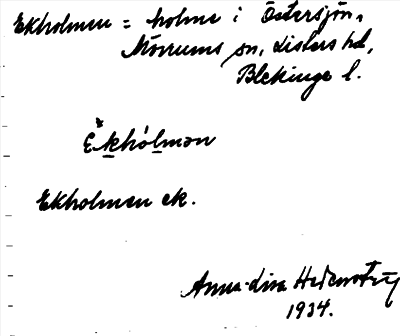 Ekholmen = holme i Östersjön,
Mörrums sn, Listers hd,
Blekinge l.
Ekhólmən
Ekholmen ek.
Anna-Lisa
1934.